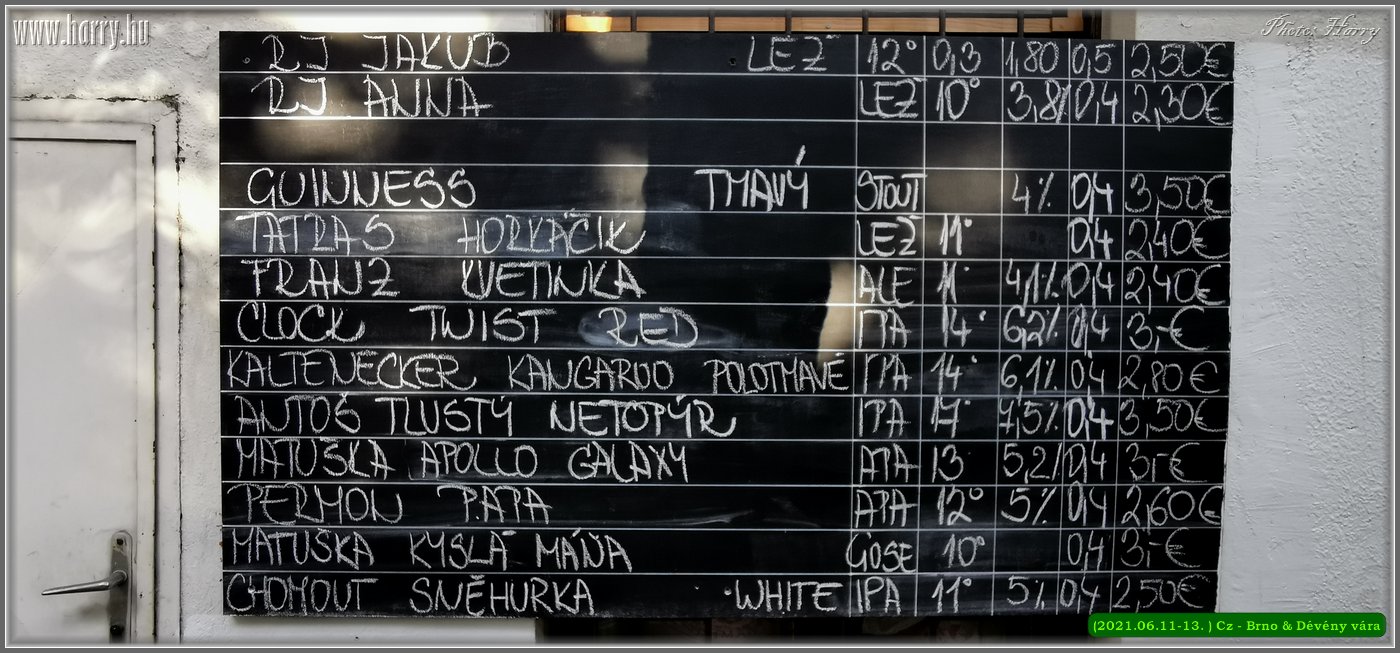 www.harry.hu
Photo: Harry
RJ JAKUB LEŽ 12° 0,3 1,80 0,5 2,50€
RJ ANNA LEŽ 10° 3,8% 0,4 2,30€
GUINNESS TMAVÝ STOUT 4% 0,4 3,50€
TATRAS HORKÁČIK LEŽ 11° 0,4 2,40€
FRANZ KVETINKA ALE 11° 4,1% 0,4 2,40€
CLOCK TWIST RED IPA 14° 6,2% 0,4 3,-€
KALTENECKER KANGAROO POLOTMAVÉ IPA 14° 6,1% 0,4 2,80€
ANTOŠ TLUSTÝ NETOPÝR IPA 17° 7,5% 0,4 3,50€
MATUŠKA APOLLO GALAXY APA 13 5,2% 0,4 3,-€
PERMON P.A.P.A APA 12° 5% 0,4 2,60€
MATUŠKA KYSLÁ MÁŇA GOSE 10° 0,4 3,-€
CHOMOUT SNĚHURKA WHITE IPA 11° 5% 0,4 2,50€
(2021.06.11-13. ) Cz - Brno & Dévény vára